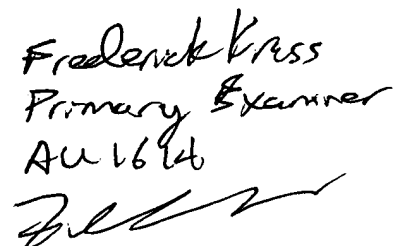 Frederick Krass
Primary Examiner
AU 1614